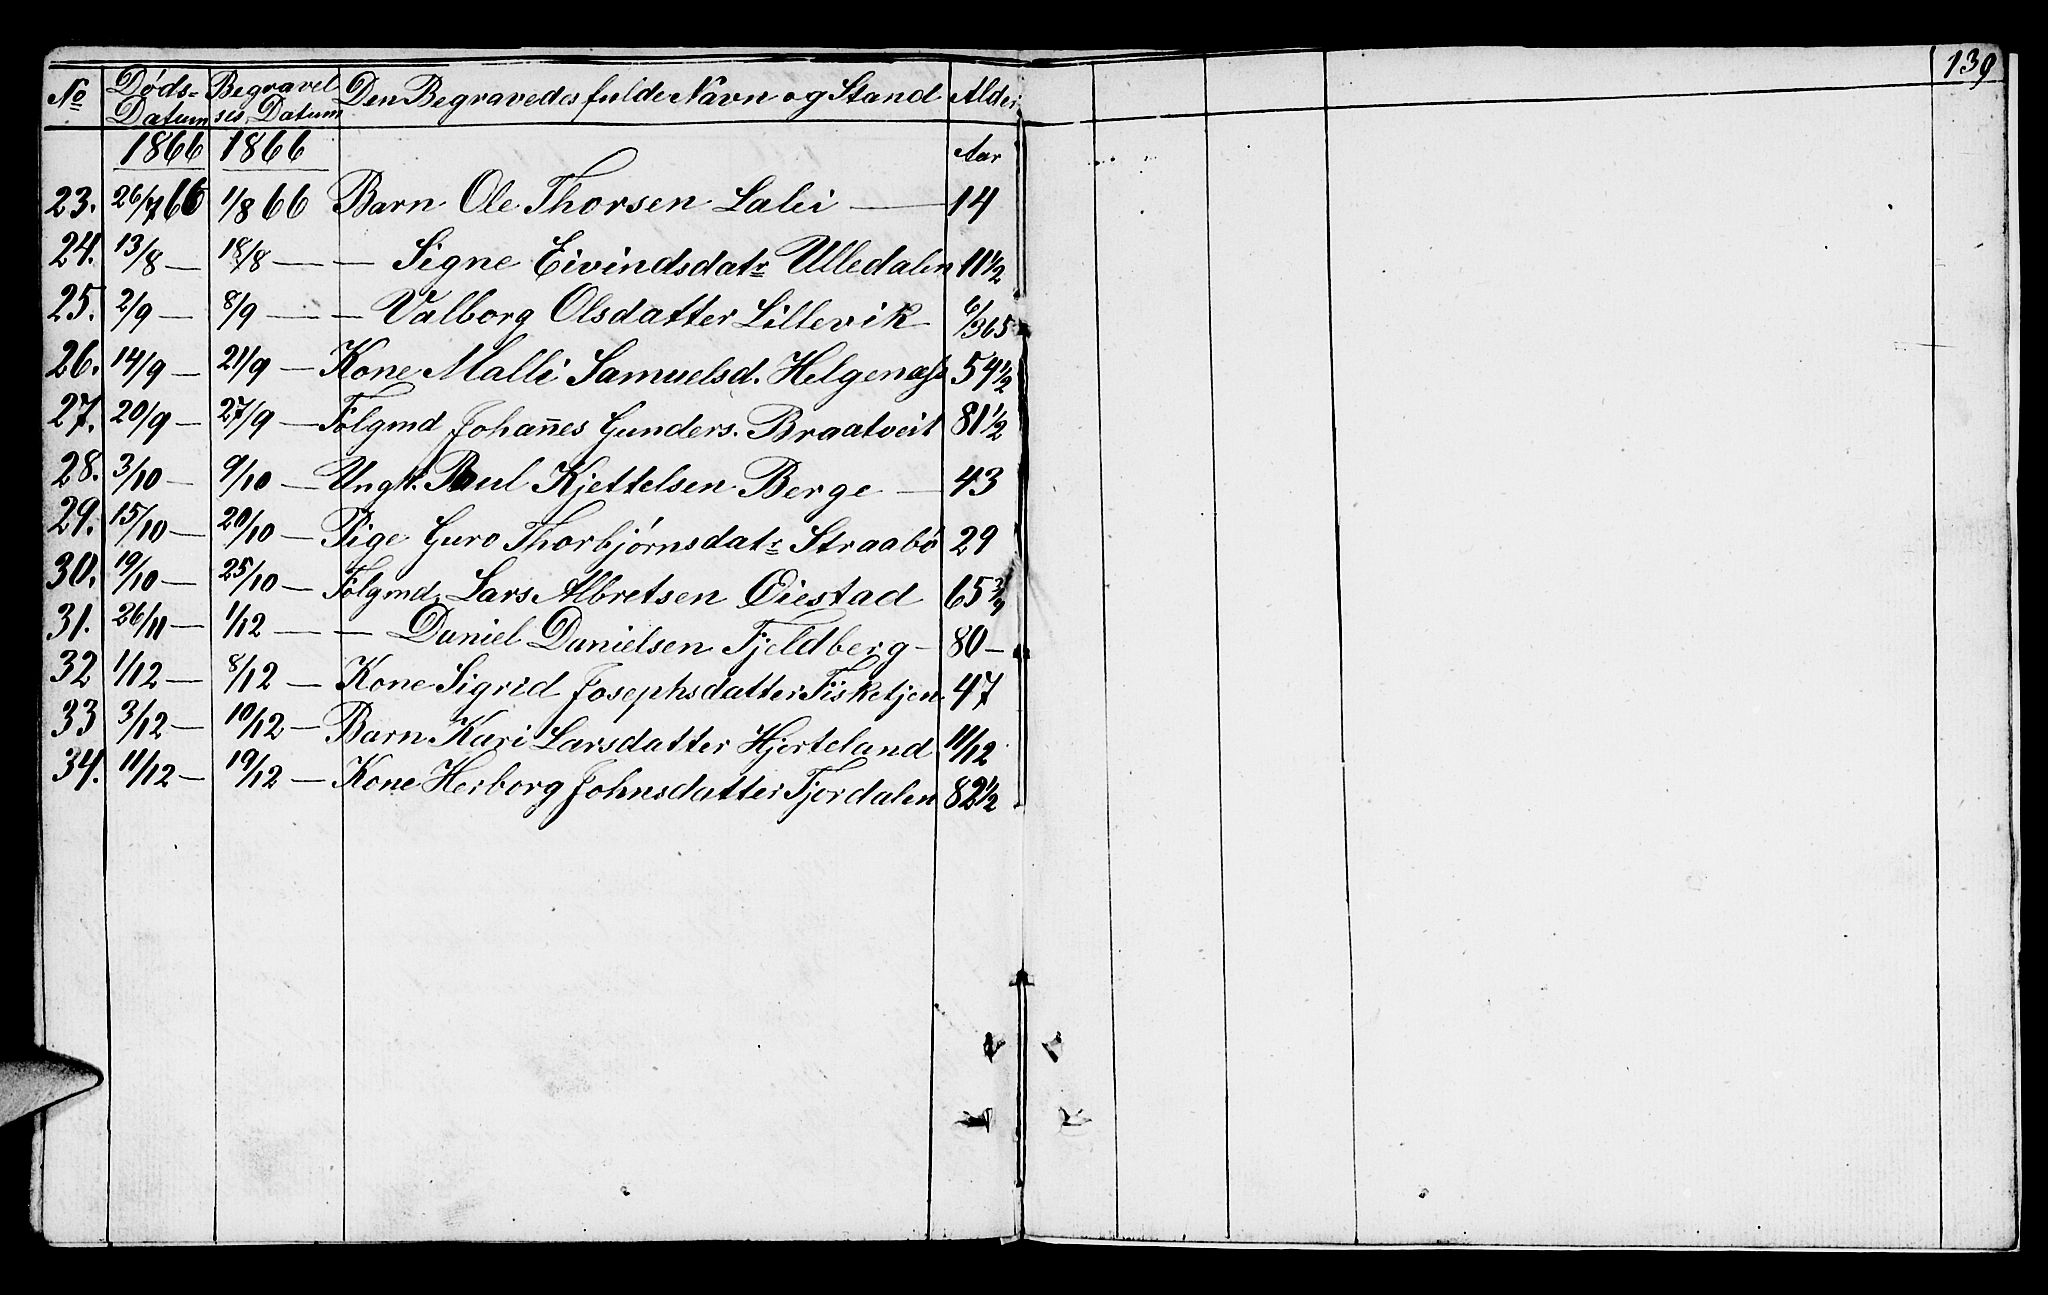 139
No Døds- Begravel Den Begravedes fulde Navn og Stand Alder
Datum ses Datum
1866 1866 Aar
23. 26/7 66 1/8 66 Barn Ole Thorsen Lalei — 14
24. 13/8 — 18/8 — — Signe Eivindsdatr Ulledalen 11 1/2
25. 2/9 — 8/9 — — Valborg Olsdatter Lillevik 6/365
26. 14/9 — 21/9 — Kone Malli Samuelsd. Helgenæss 54 1/2
27. 20/9 — 27/9 — Følgmd Johannes Gunders. Braatveit 81 1/2
28. 3/10 — 9/10 — Ungk. Paul Kjettelsen Berge — 43
29. 15/10 — 20/10 — Pige Guro Thorbjørnsdatr Straabø 29
30. 19/10 — 25/10 — Følgmd. Lars Albretsen Øiestad 65
31. 26/11 — 1/12 — — Daniel Danielsen Fjeldberg — 80 —
32 1/12 — 8/12 — Kone Sigrid Josephsdatter Fisketjen 47
33 3/12 — 10/12 — Barn Kari Larsdatter Hjerteland 11/12
34. 11/12 — 19/12 — Kone Herborg Johnsdatter Fjordalen 82 1/2